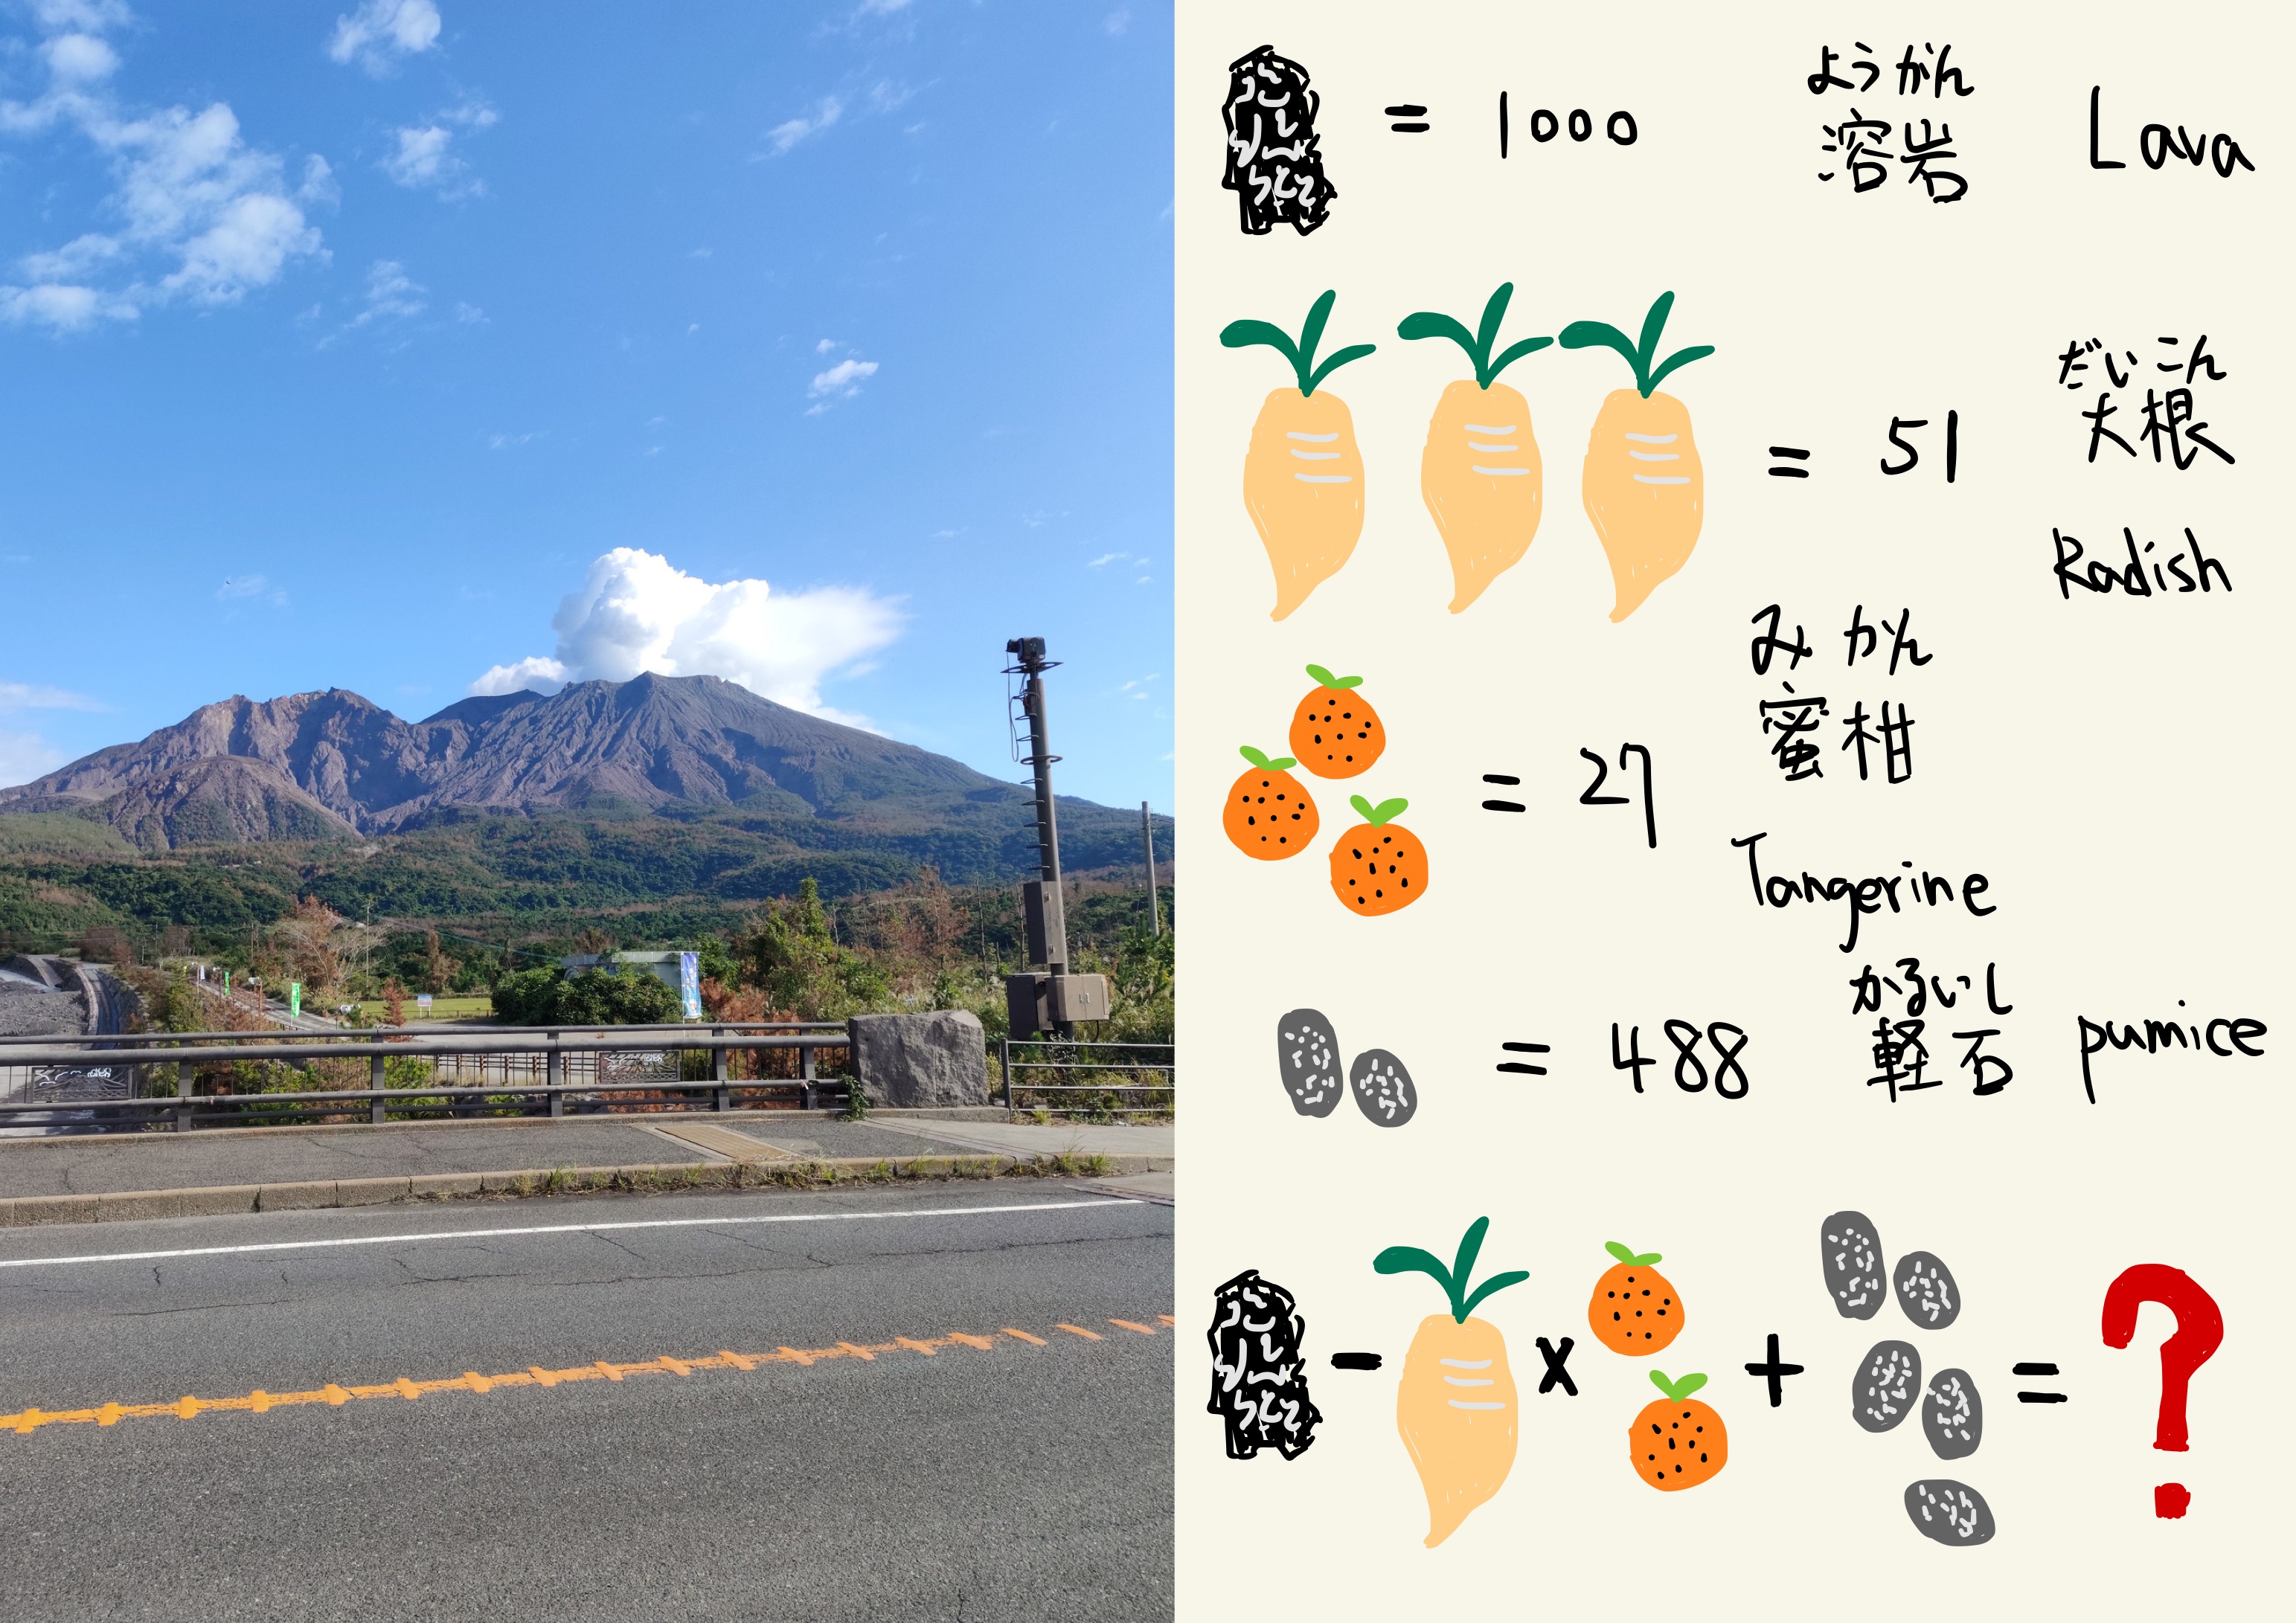 = 1000
ようがん
溶岩
Lava
= 51
だいこん
大根
Radish
= 27
みかん
蜜柑
Tangerine
= 488
かるいし
軽石
pumice
- x + = ?